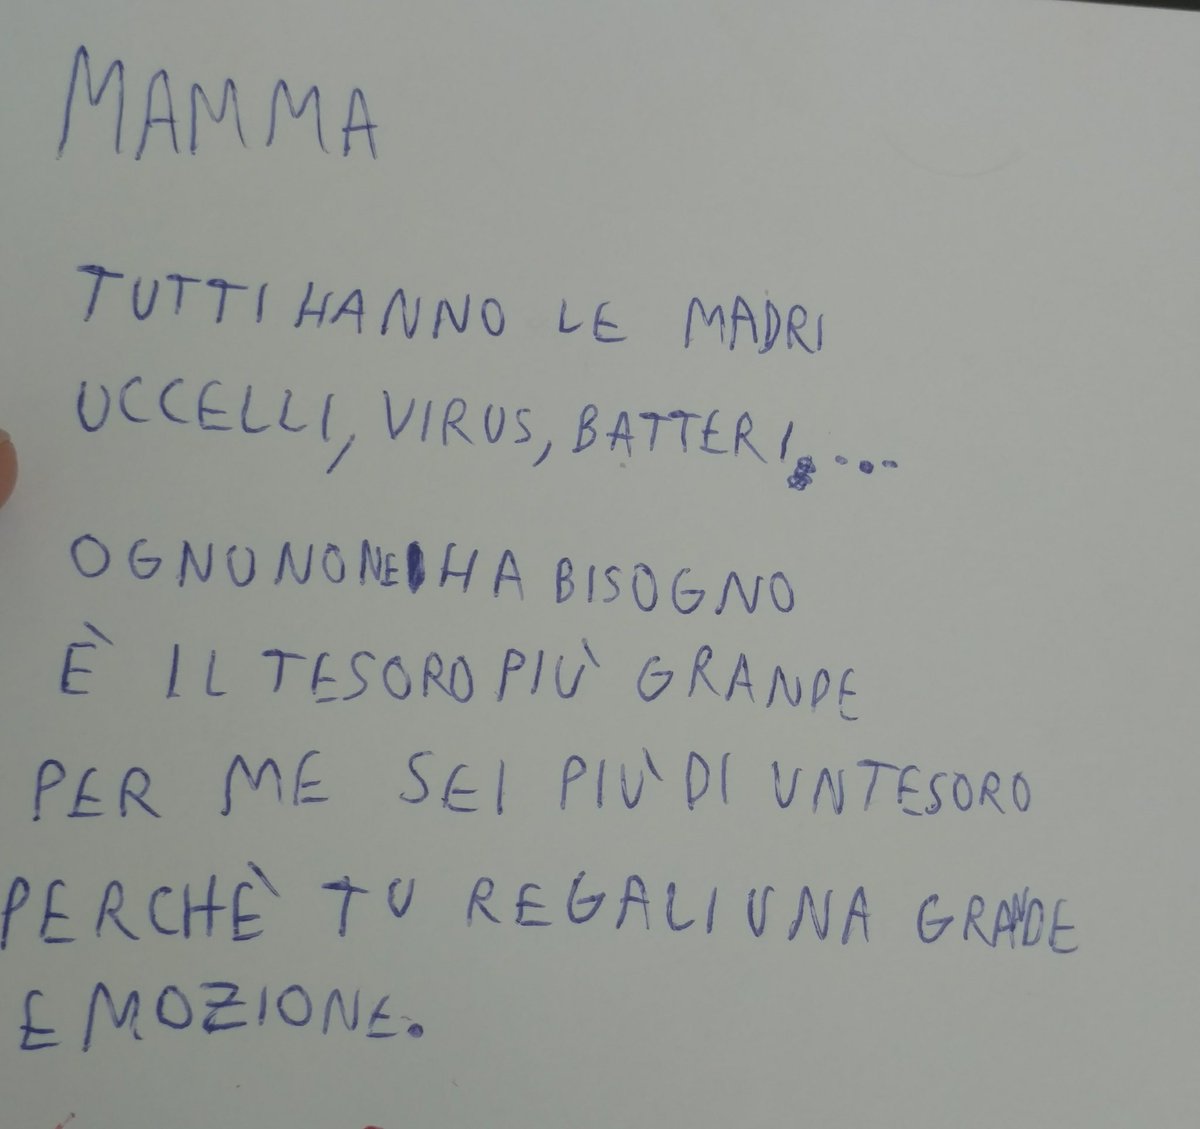 MAMMA
TUTTI HANNO LE MADRI
UCCELLI, VIRUS, BATTERI, ...
OGNUNO NE HA BISOGNO
È IL TESORO PIÙ GRANDE
PER ME SEI PIÙ DI UN TESORO
PERCHÈ TU REGALI UNA GRANDE
EMOZIONE.